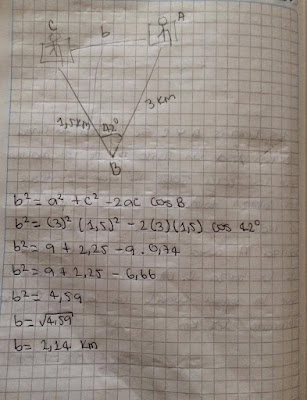 C
b
A
1,5km
42°
3 km
B
b² = a² + c² - 2ac cos B
b² = (3)² (1,5)² - 2(3)(1,5) cos 42°
b² = 9 + 2,25 - 9 . 0,74
b² = 9 + 2,25 - 6,66
b² = 4,59
b = √4,59
b = 2,14 km